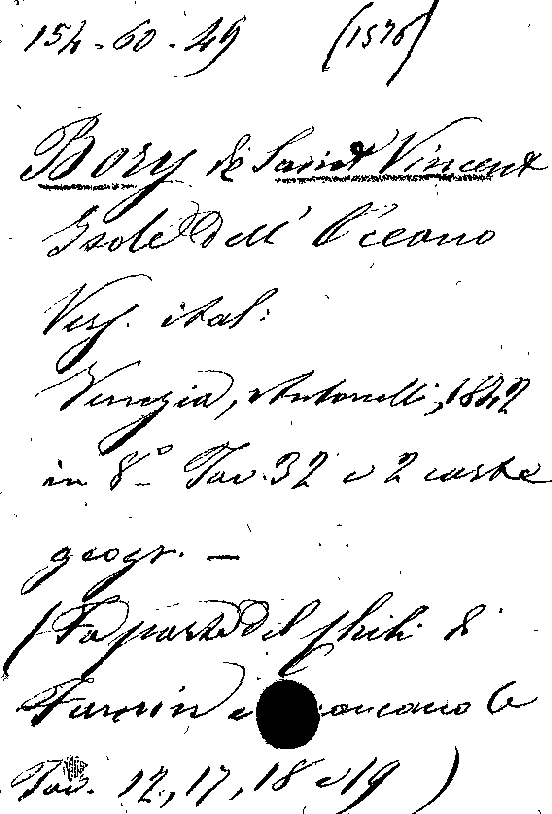 154-60-49 (1576)
Bory de Saint Vincent
Isole dell' Oceano
Vers. ital:
Venezia, Antonelli, 1842
in 8º Tav. 32 e 2 carte
geogr. —
(Fa parte del Chili di
Famin e mancano le
Tav. 12, 17, 18 e 19)